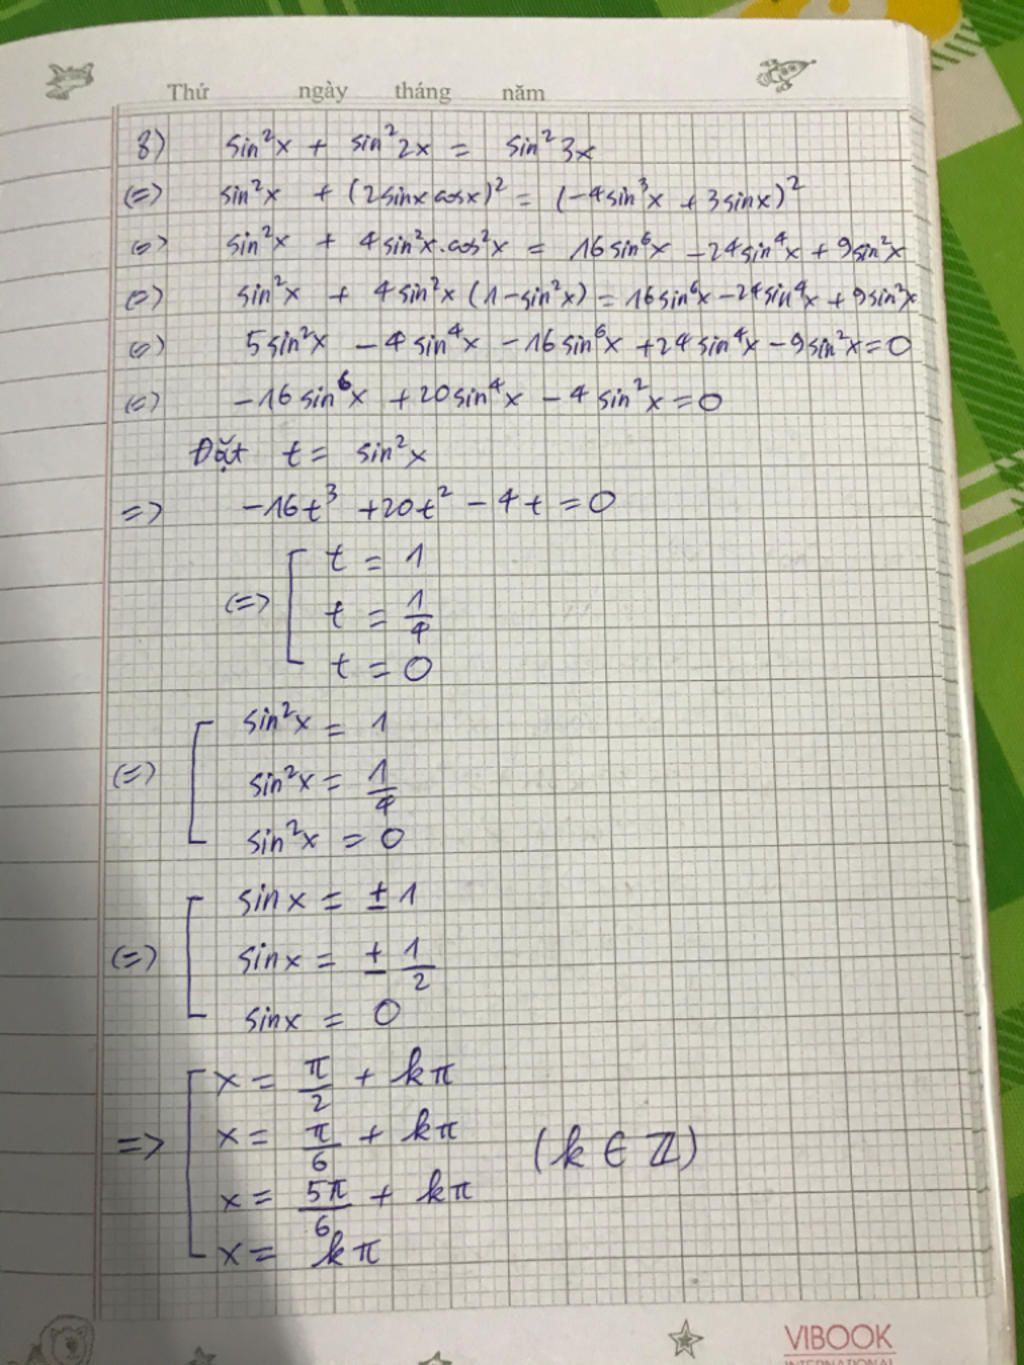 Thứ ngày tháng năm
8) sin²x + sin²2x = sin²3x
(=) sin²x + (2sinxcosx)² = (-4sin³x + 3sinx)²
(=) sin²x + 4sin²x.cos²x = 16sin⁶x - 24sin⁴x + 9sin²x
(=) sin²x + 4sin²x (1-sin²x) = 16sin⁶x - 24sin⁴x + 9sin²x
(=) 5sin²x - 4sin⁴x - 16sin⁶x + 24sin⁴x - 9sin²x = 0
(=) -16sin⁶x + 20sin⁴x - 4sin²x = 0
Đặt t = sin²x
=> -16t³ + 20t² - 4t = 0
(=> [ t = 1
t = 1/4
t = 0
(=) [ sin²x = 1
sin²x = 1/4
sin²x = 0
(=) [ sinx = ±1
sinx = ± 1/2
sinx = 0
=> [ x = π/2 + kπ
x = π/6 + kπ (k ∈ Z)
x = 5π/6 + kπ
x = kπ
VIBOOK
INTERNATIONAL